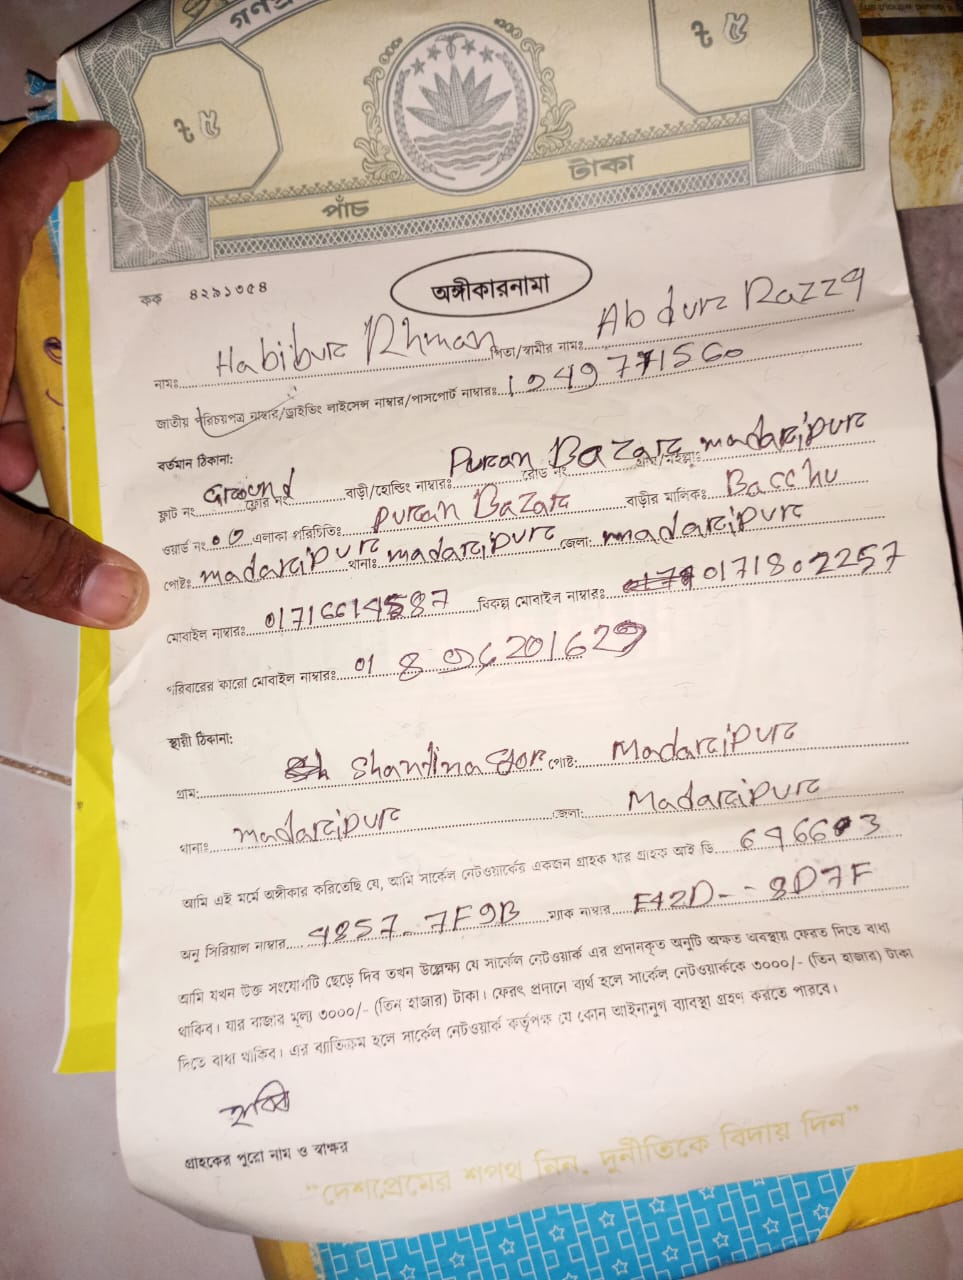 গণপ্র
৳ ৫
৳ ৫
পাঁচ টাকা
কক ৪২৯১৩৫৪
অঙ্গীকারনামা
নামঃ Habibur Rhman পিতা/স্বামীর নামঃ Abdur Razzq
জাতীয় পরিচয়পত্র নাম্বার/ড্রাইভিং লাইসেন্স নাম্বার/পাসপোর্ট নাম্বারঃ 1949771560
বর্তমান ঠিকানা:
ফ্লাট নং Ground ফ্লোর নং বাড়ী/হোল্ডিং নাম্বারঃ Puran Bazar রোড নং madaripur
ওয়ার্ড নং এলাকা পরিচিতিঃ Puran Bazar বাড়ীর মালিকঃ Bacchu
পোষ্টঃ madaripur থানাঃ madaripur জেলা: madaripur
মোবাইল নাম্বারঃ বিকল্প মোবাইল নাম্বারঃ 0171802257
পরিবারের কারো মোবাইল নাম্বারঃ 01
স্থায়ী ঠিকানা:
গ্রাম: পোষ্ট: Madaripur
থানাঃ madaripur জেলা: Madaripur
আমি এই মর্মে অঙ্গীকার করিতেছি যে, আমি সার্কেল নেটওয়ার্কের একজন গ্রাহক যার গ্রাহক আই ডি
অনু সিরিয়াল নাম্বার 4857-7F9B ম্যাক নাম্বার E42D--8D7F
আমি যখন উক্ত সংযোগটি ছেড়ে দিব তখন উল্লেক্ষ্য যে সার্কেল নেটওয়ার্ক এর প্রদানকৃত অনুটি অক্ষত অবস্থায় ফেরত দিতে বাধ্য
থাকিব। যার বাজার মূল্য ৩০০০/- (তিন হাজার) টাকা। ফেরৎ প্রদানে ব্যর্থ হলে সার্কেল নেটওয়ার্ককে ৩০০০/- (তিন হাজার) টাকা
দিতে বাধ্য থাকিব। এর ব্যাতিক্রম হলে সার্কেল নেটওয়ার্ক কর্তৃপক্ষ যে কোন আইনানুগ ব্যাবস্থা গ্রহণ করতে পারবে।
হাবিব
গ্রাহকের পুরো নাম ও স্বাক্ষর
"দেশপ্রেমের শপথ নিন, দুর্নীতিকে বিদায় দিন"